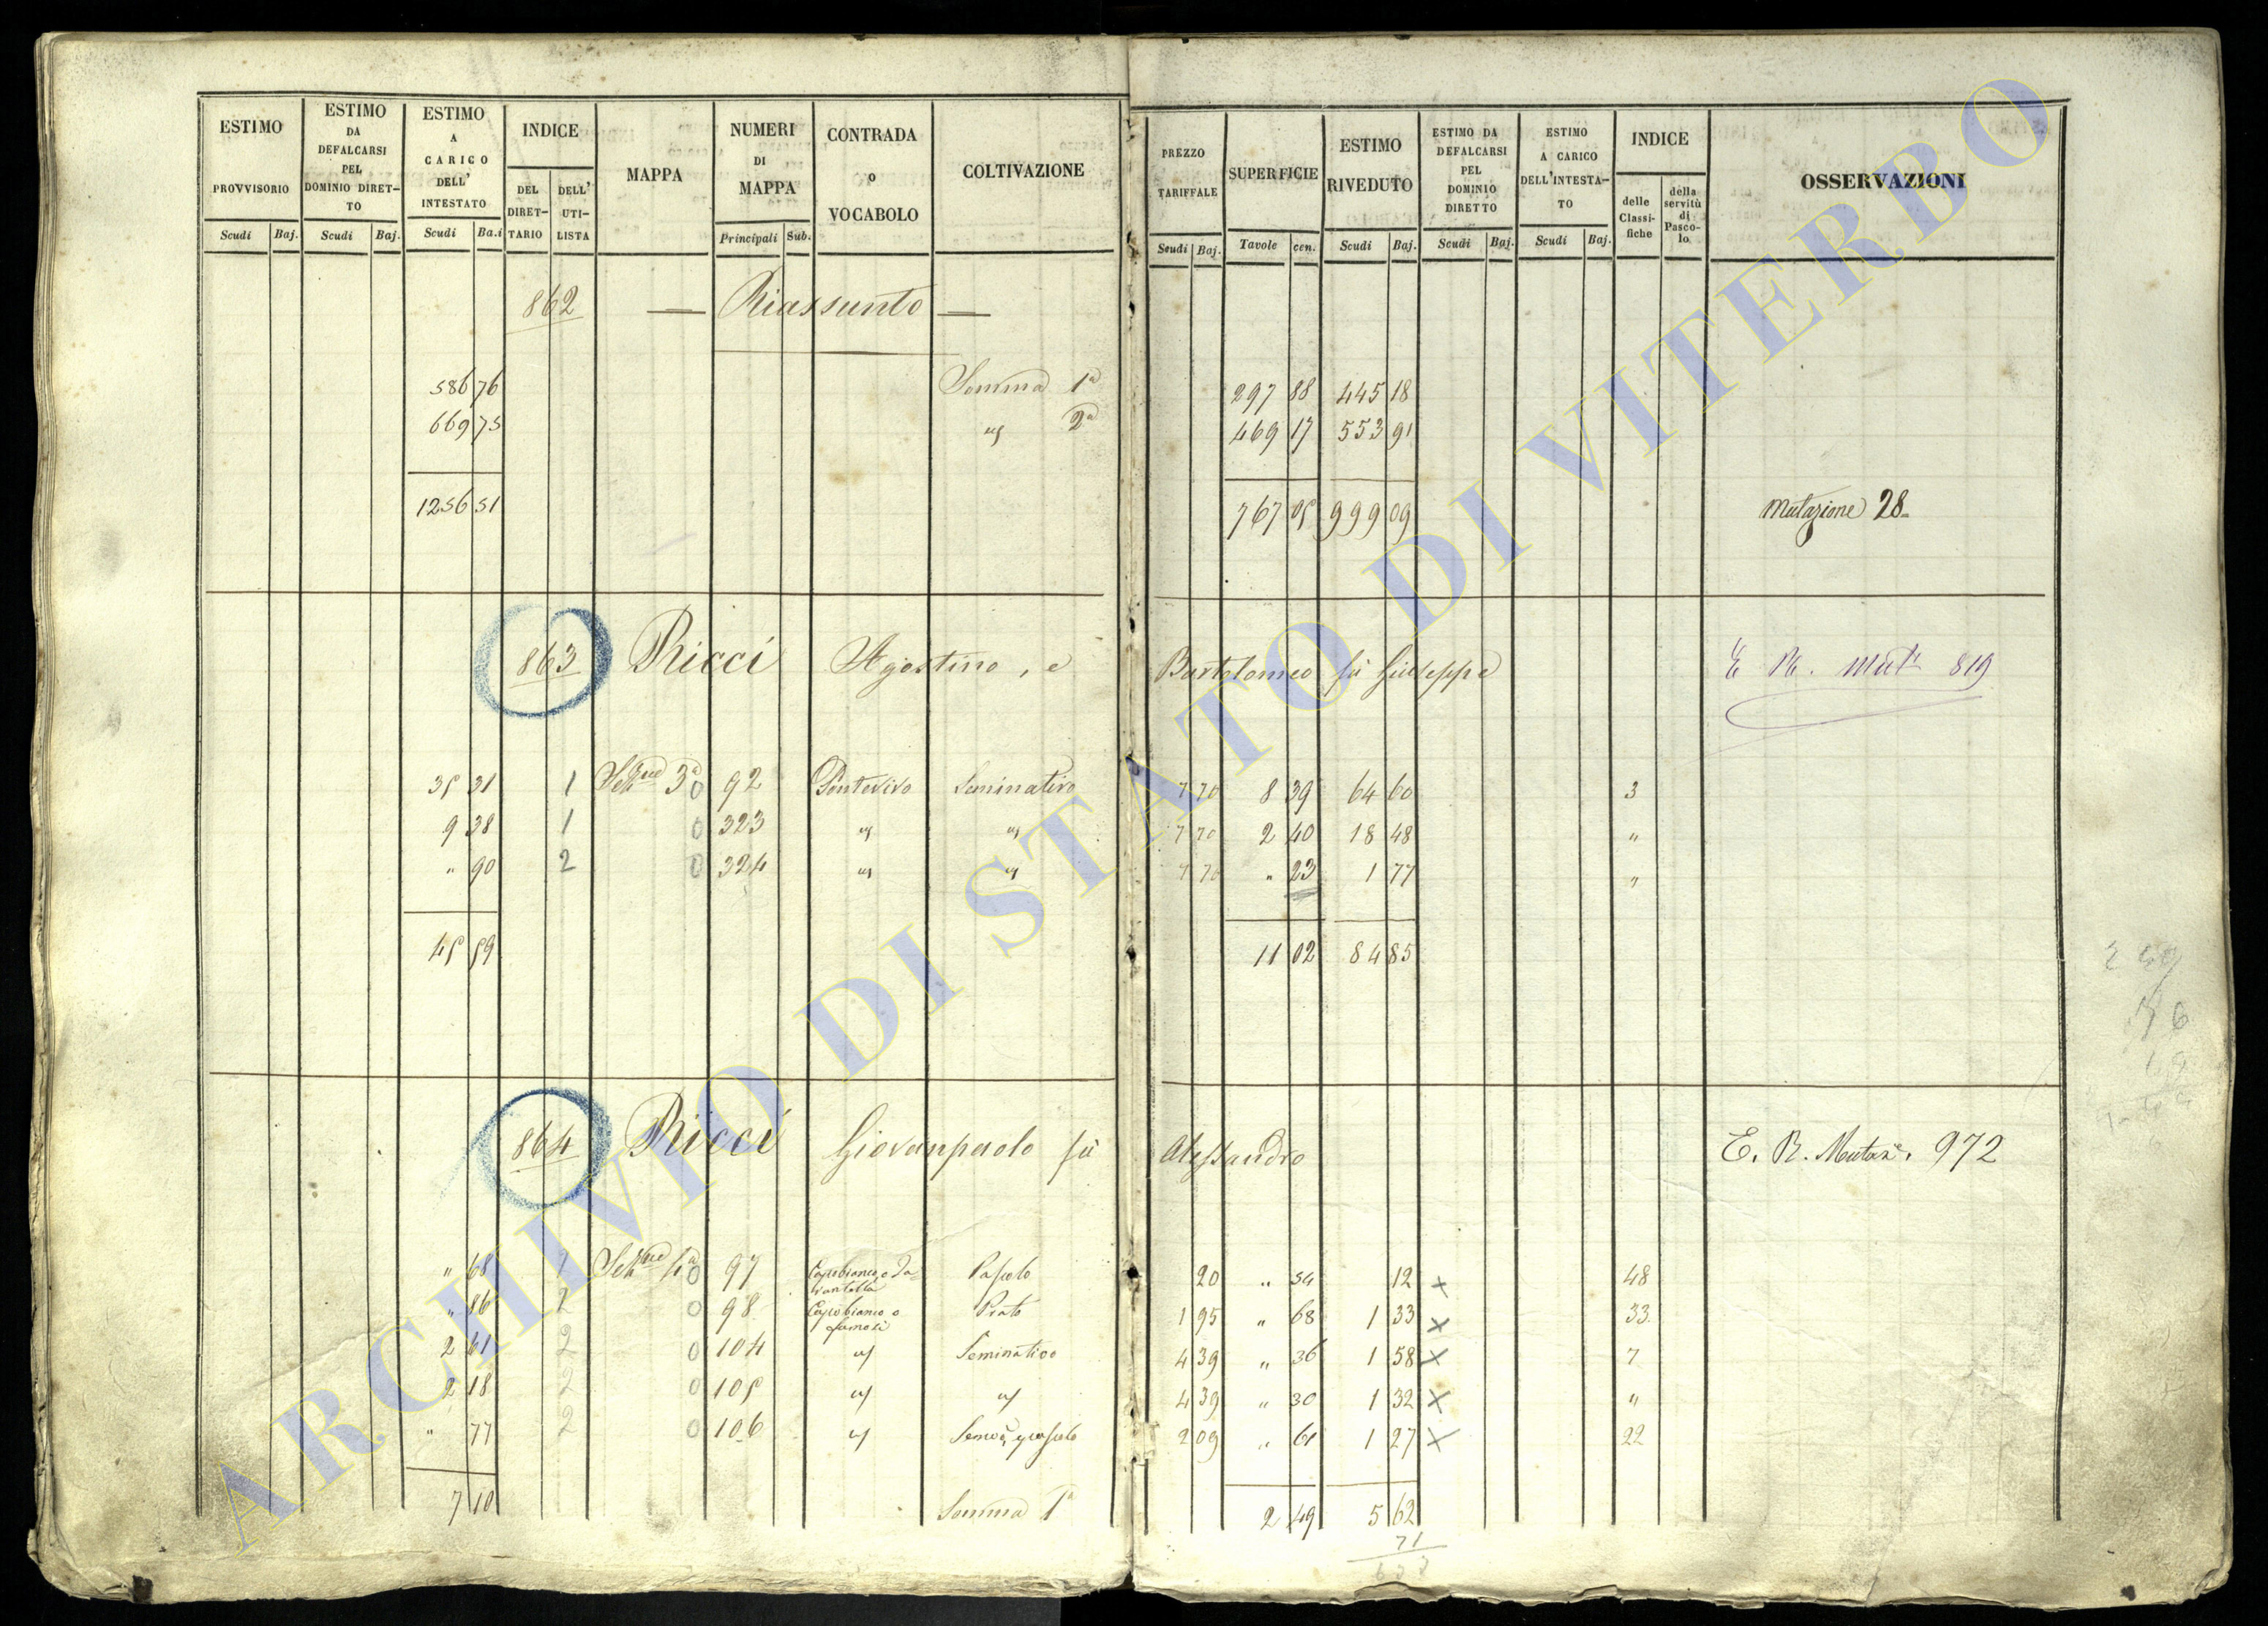 ESTIMO PROVVISORIO Scudi Baj.
ESTIMO DA DEFALCARSI PEL DOMINIO DIRET- TO Scudi Baj.
ESTIMO A CARICO DELL' INTESTATO Scudi Ba.i
INDICE DEL DIRET- TARIO DELL' UTI- LISTA
MAPPA
NUMERI DI MAPPA Principali Sub.
CONTRADA o VOCABOLO
COLTIVAZIONE
PREZZO TARIFFALE Scudi Baj.
SUPERFICIE Tavole cen.
ESTIMO RIVEDUTO Scudi Baj.
ESTIMO DA DEFALCARSI PEL DOMINIO DIRETTO Scudi Baj.
ESTIMO A CARICO DELL'INTESTA- TO Scudi Baj.
INDICE delle Classi- fiche della servitù di Pasco- lo
OSSERVAZIONI
862 — Riassunto —
586 76 Somma 1a 297 88 445 18
669 75 " 2a 469 17 553 91
1256 51 767 05 999 09 Mutazione 28
863 Ricci Agostino, e Bartolomeo fu Giuseppe E R. Mut. 819
35 31 1 Sezne 3a 0 92 Pontevivo Seminativo 7 70 8 39 64 60 3
9 38 1 0 323 " " 7 70 2 40 18 48 "
" 90 2 0 324 " " 7 70 " 23 1 77 "
45 59 11 02 84 85
864 Ricci Giovanpaolo fu Alessandro E. R. Mutaz. 972
" 68 1 Sezne 4a 0 97 Capobianco o Pascolo 20 " 54 12 x 48
" 86 2 0 98 Capobianco o Prato 1 95 " 68 1 33 x 33
2 61 2 0 104 " Seminativo 4 39 " 36 1 58 x 7
2 18 2 0 105 " " 4 39 " 30 1 32 x "
" 77 2 0 106 " 2 09 " 61 1 27 x 22
7 10 Somma 1a 2 49 5 62
71
ARCHIVIO DI STATO DI VITERBO